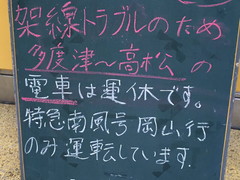 架線トラブルのため
多度津〜高松の
電車は運休です。
特急南風号岡山行
のみ運転しています.